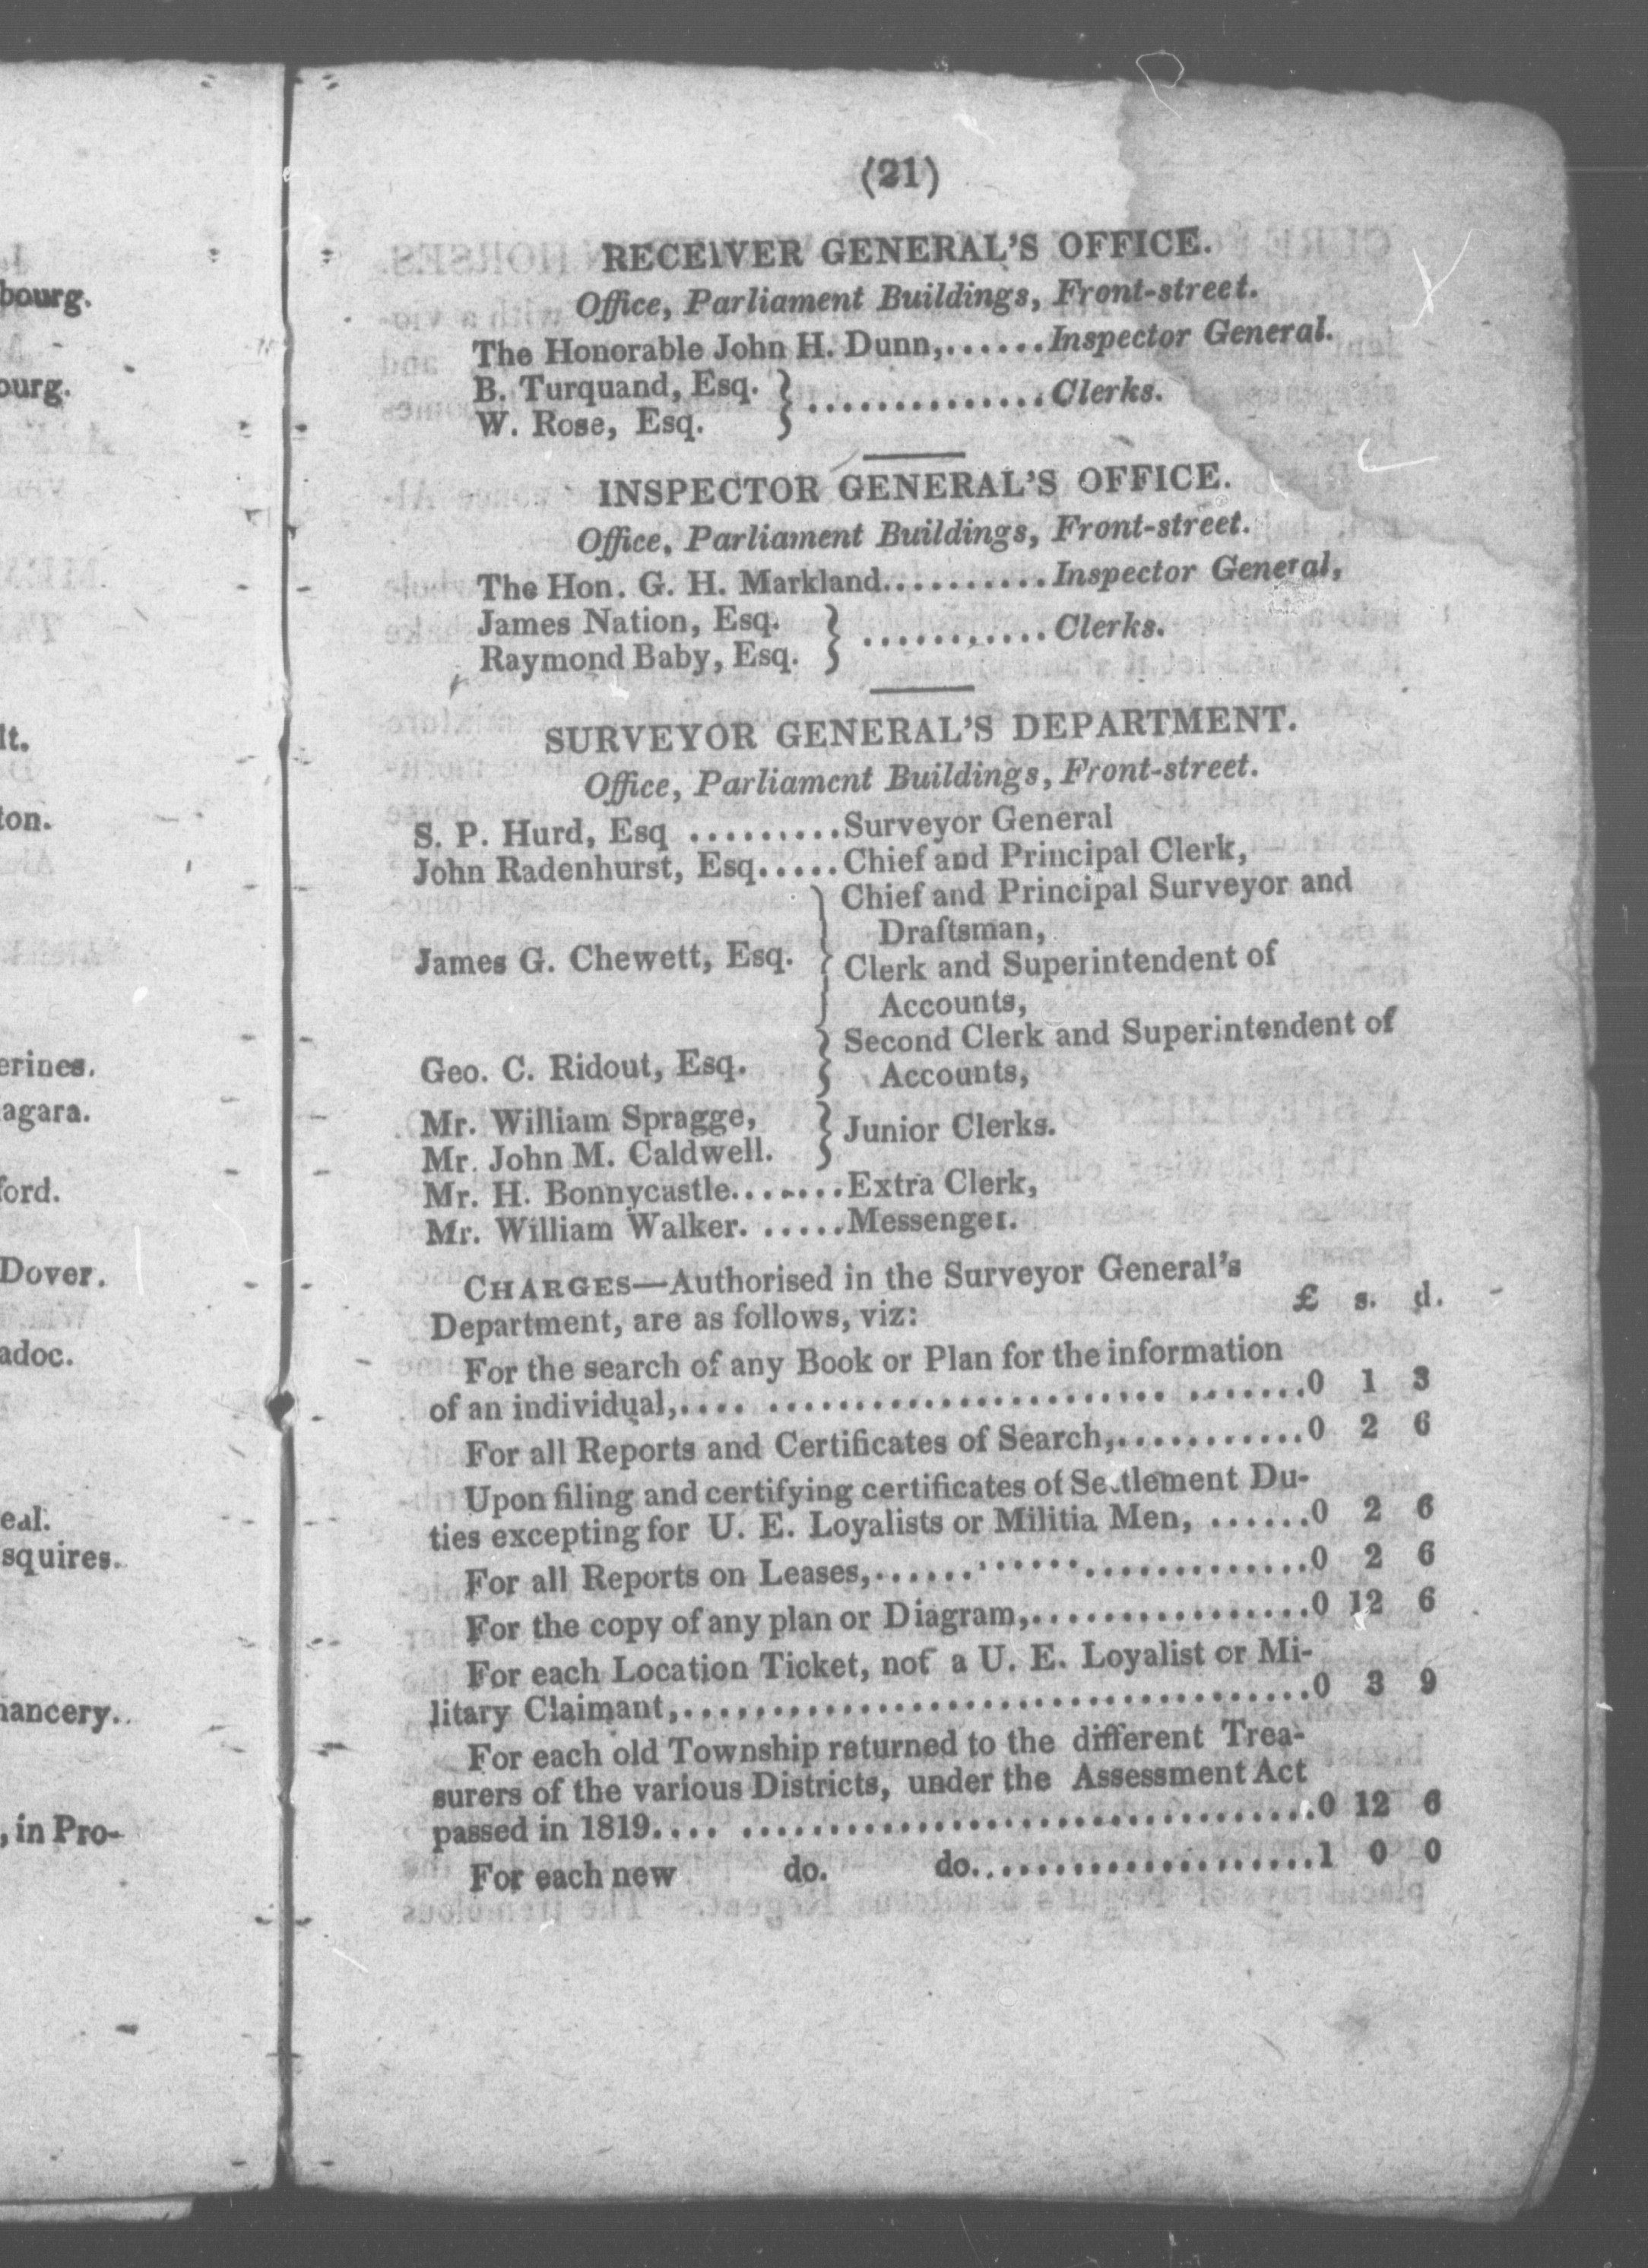 bourg.
ourg.
lt.
ton.
erines.
agara.
ford.
Dover.
adoc.
eal.
squires.
hancery.
, in Pro-
(21)
RECEIVER GENERAL'S OFFICE.
Office, Parliament Buildings, Front-street.
The Honorable John H. Dunn,......Inspector General.
B. Turquand, Esq. } ..............Clerks.
W. Rose, Esq.
INSPECTOR GENERAL'S OFFICE.
Office, Parliament Buildings, Front-street.
The Hon. G. H. Markland..........Inspector General,
James Nation, Esq. } ...........Clerks.
Raymond Baby, Esq.
SURVEYOR GENERAL'S DEPARTMENT.
Office, Parliament Buildings, Front-street.
S. P. Hurd, Esq .........Surveyor General
John Radenhurst, Esq.....Chief and Principal Clerk,
Chief and Principal Surveyor and
Draftsman,
James G. Chewett, Esq. } Clerk and Superintendent of
Accounts,
Second Clerk and Superintendent of
Geo. C. Ridout, Esq. } Accounts,
Mr. William Spragge, } Junior Clerks.
Mr. John M. Caldwell.
Mr. H. Bonnycastle........Extra Clerk,
Mr. William Walker. ......Messenger.
CHARGES—Authorised in the Surveyor General's
Department, are as follows, viz: £ s. d.
For the search of any Book or Plan for the information
of an individual,.... ....................... .......0 1 3
For all Reports and Certificates of Search,...........0 2 6
Upon filing and certifying certificates of Settlement Du-
ties excepting for U. E. Loyalists or Militia Men, ......0 2 6
For all Reports on Leases,.........................0 2 6
For the copy of any plan or Diagram,.................0 12 6
For each Location Ticket, not a U. E. Loyalist or Mi-
litary Claimant,.....................................0 3 9
For each old Township returned to the different Trea-
surers of the various Districts, under the Assessment Act
passed in 1819.... ..................................0 12 6
For each new do. do.....................1 0 0